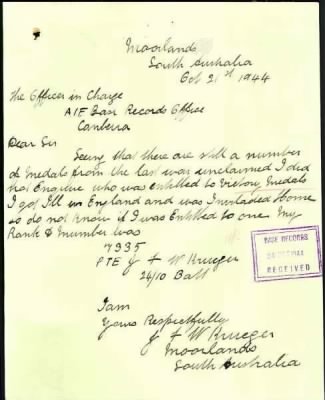 Moorlands
South Australia
Oct 21st 1944
The Officer in Charge
AIF Base Records Office
Canberra
Dear Sir
Seeing that there are still a number
of Medals from the last war unclaimed I did
not Enquire who was entitled to Medals
I got Ill in England and was Invalided Home
so do not know if I was Entitled to one My
Rank & Number was
7935
PTE J F W Krueger
24/10 Batt
BASE RECORDS
RECEIVED
I am
Yours Respectfully
J F W Krueger
Moorlands
South Australia